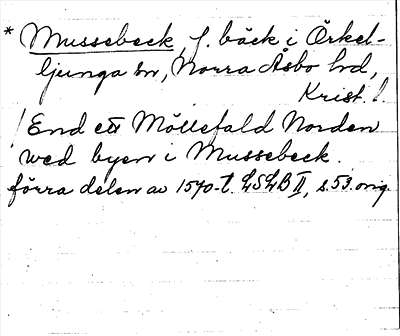 * Mussebeck, f. bäck i Örkel-
ljunga sn, Norra Åsbo hd,
Krist. l.
! End ett Möllefald Norden
wed byen i Mussebeck.
förra delen av 1570-t. LSLB II, s. 53. orig.